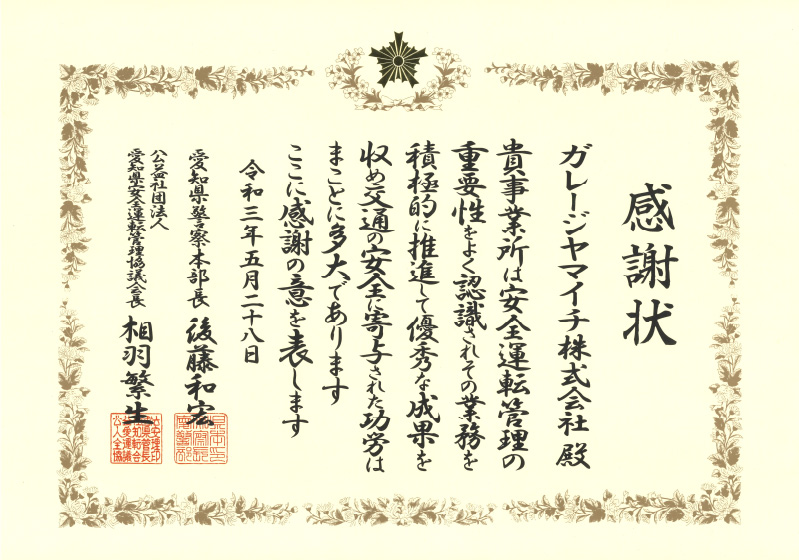 感謝状
ガレージヤマイチ株式会社 殿
貴事業所は安全運転管理の
重要性をよく認識されその業務を
積極的に推進して優秀な成果を
収め交通の安全に寄与された功労は
まことに多大であります
ここに感謝の意を表します
令和三年五月二十八日
愛知県警察本部長 後藤和宏
公益社団法人
愛知県安全運転管理協議会長 相羽繁生